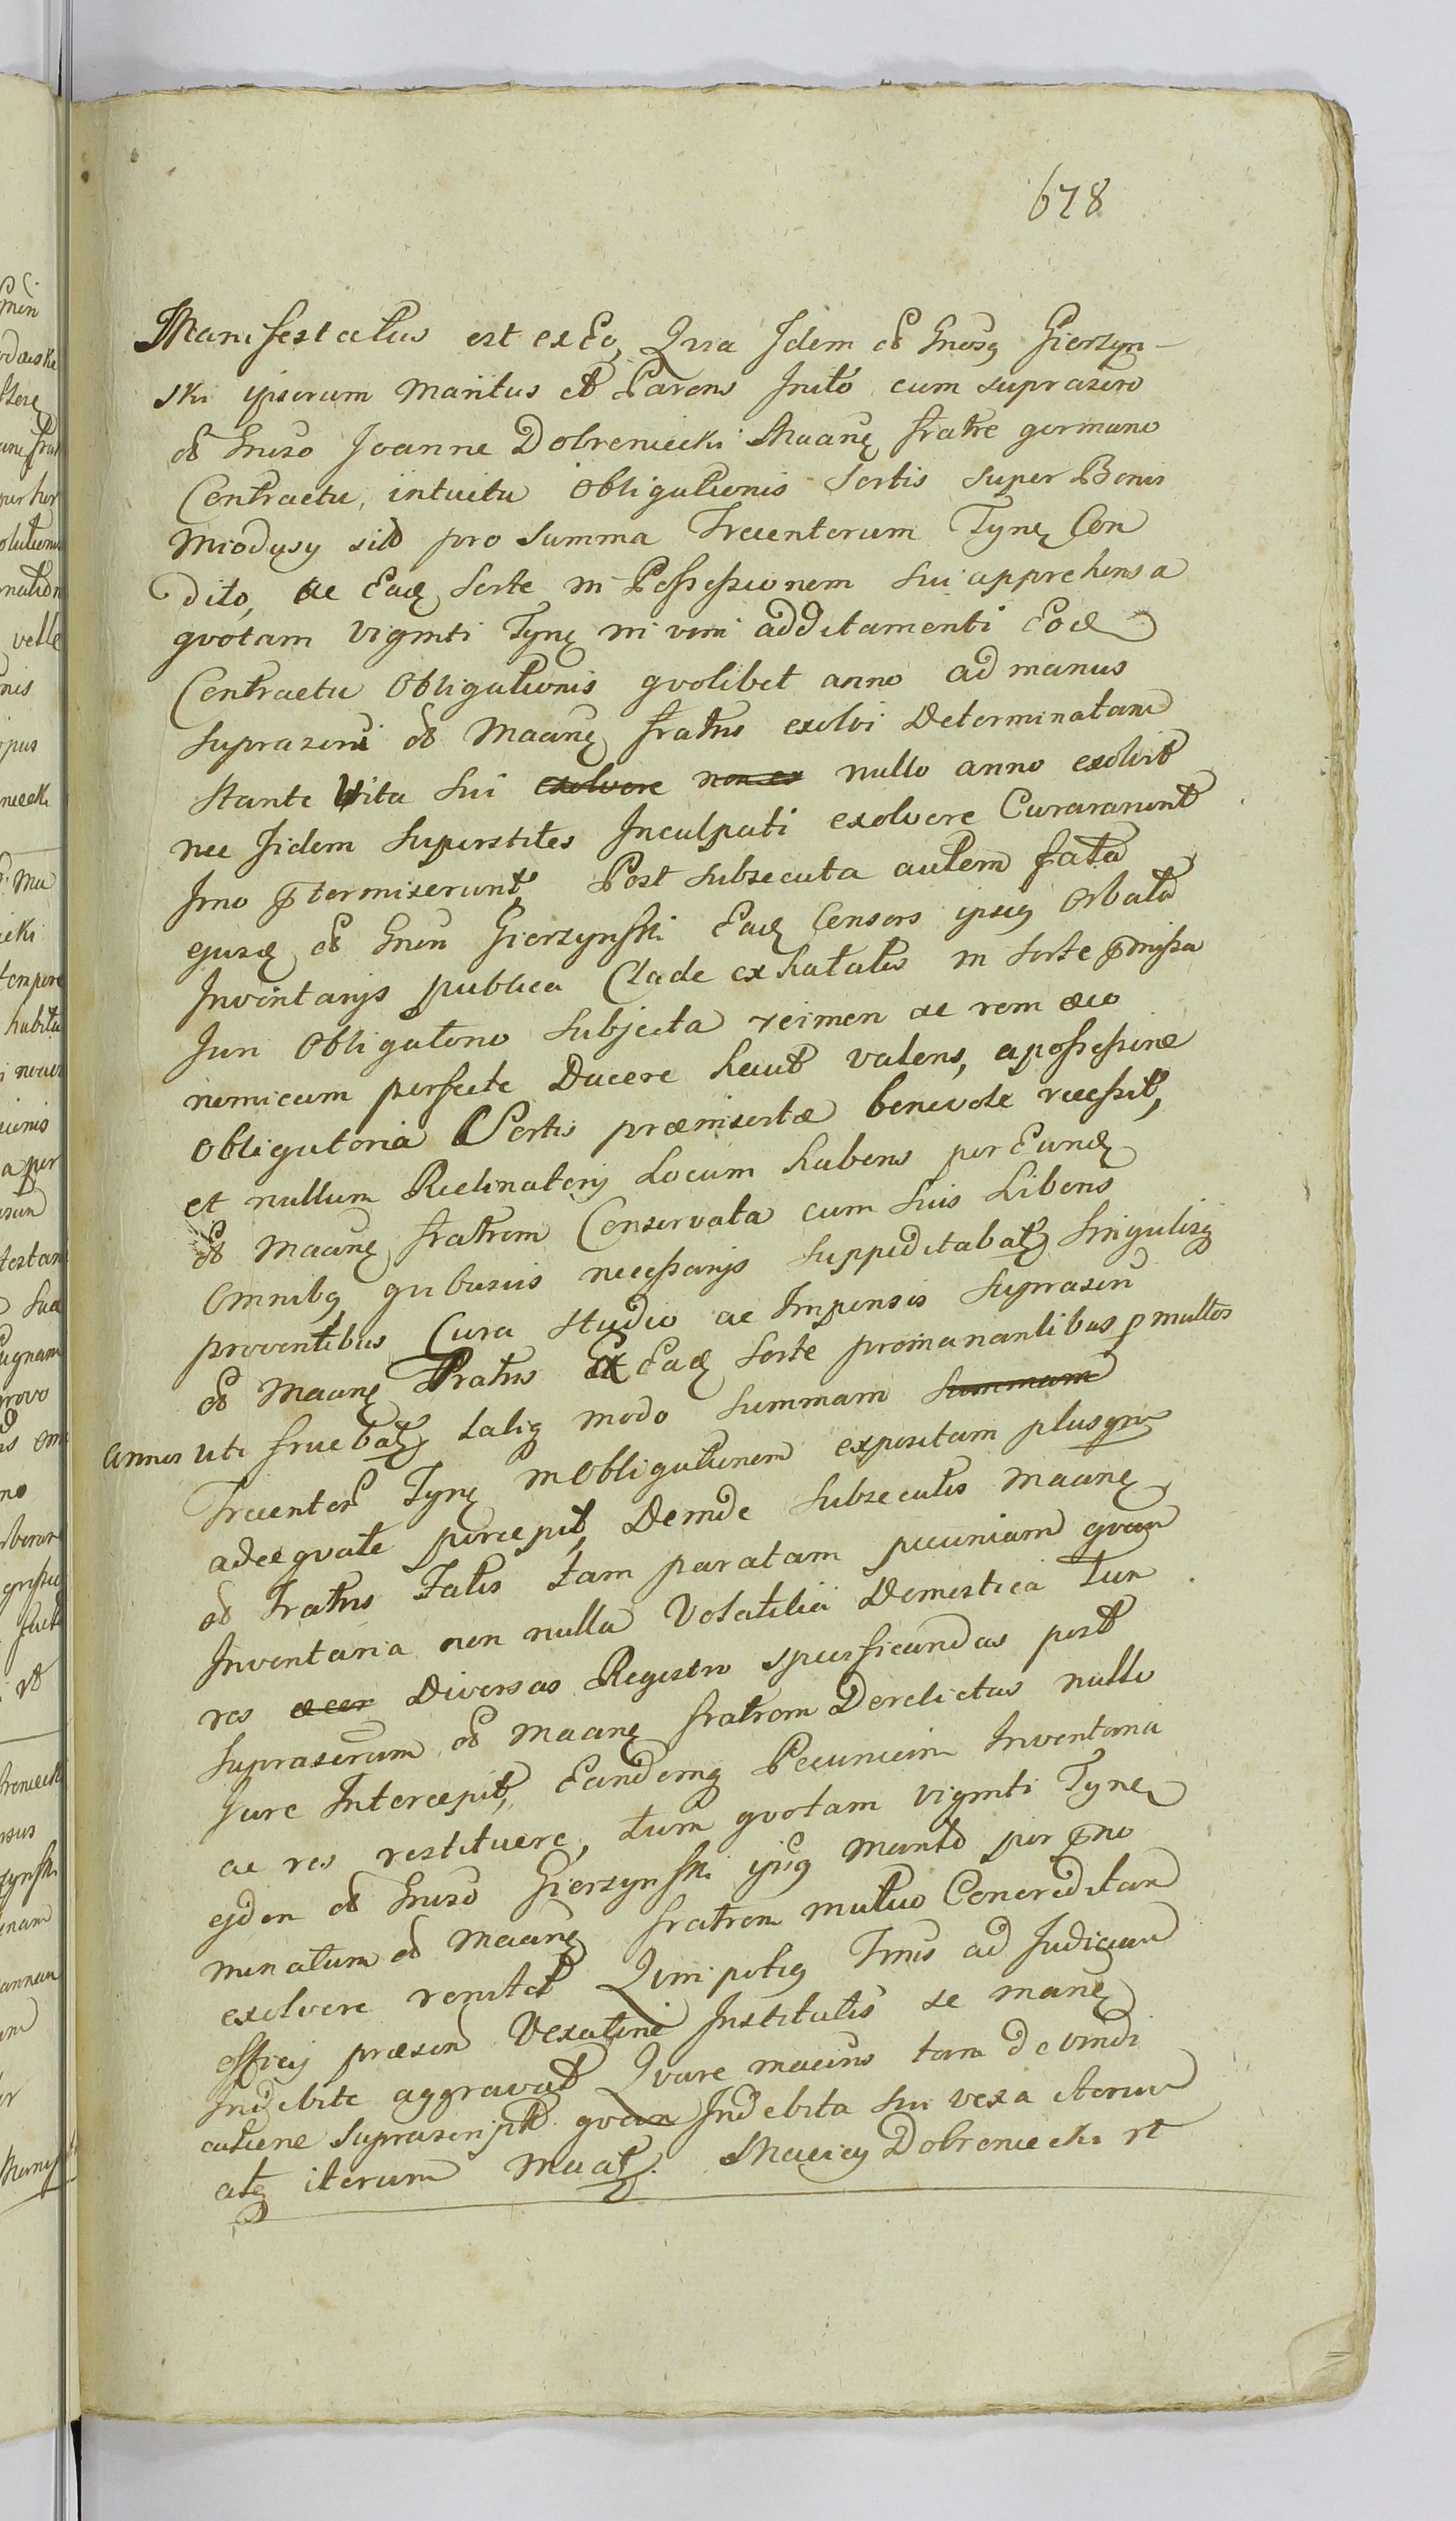 678
Manifestatus est ex Eo, Qvia Idem od Gnosq Gierzyn-
ski ipsorum Maritus et Parens Inito cum suprascro
od Gnroso Joanne Dobreniecki Maanę fratre germano
Contractu, intuitu Obligationis Sortis super Bonis
Miodusy sitt pro Summa Trecentorum Tynę Con
Dito, ac Eadę Sorte in Possessionem sui apprehensa
qvotam viginti Tynę in vim additamenti Eodę
Contractu Obligationis qvolibet anno ad manus
Suprascri od Maanę fratris exolvi Determinatam
Stante Vita Sui exolvere non ex nullo anno exolvit
nec Iidem Superstites Inculpati exolvere Curararunt
Imo prtermiserunt, Post subsecuta autem fata
ejusdę od Gnru Gierzynski Eadę Consors ipsiq Orbata
Inventarijs publica Clade exhatatis in Sorte pmissa
Juri Obligatorio Subjecta reimen ac rem oeco
nomicam perfecte Ducere haut valens, a possessione
Obligatoria Sortis præinsertæ benevole recessit,
et nullum Reclinatorij Locum habens per Eundę
od Maanę fratrem Conservata cum Suis Liberis
Omnibq qvibusvis necessarijs suppeditabatę Singulisq
proventibus Cura Studio ac Impensis Suprascri
od Maanę Fratris Ex Eadę Sorte promanantibus p multos
annos uti fruebatę taliq modo Summam Summam
Trecentor Tynę in Obligationem expositam plusqve
adeeqvate percepit, Deinde Subsecutis Maanę
od Fratris Fatis tam paratam pecuniam qvam
Inventaria non nulla Volatilia Domestica tum
res acer Diversas Registro specificandas post
Suprascrum od Maanę fratrem Derelictas nullo
Jure Intercepit, Eandemq Pecuniam Inventaria
ac res restituere, tum qvotam viginti Tynę
ejdem od Gnroso Gierzynski ipsiq Marito per pno
minatum od Maanę fratrem mutuo Concreditam
exolvere renitet Qvinpotiq Tmis ad Judicium
officij præsen Vexatine Institutis se manę
Indebite aggravat Qvare maans tam de vindi
catione Suprascript qvam Indebita sui vexa iterum
atq iterum Maatę. Maciey Dobreniecki rt